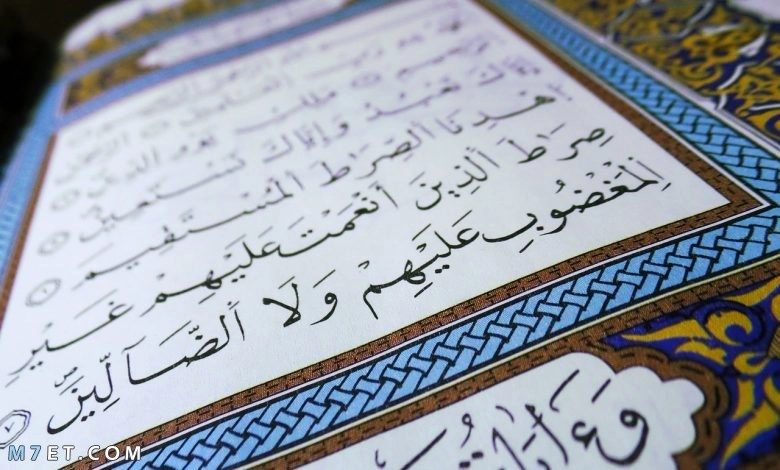 مَلِكِ يَوْمِ الدِّينِ
إِيَّاكَ نَعْبُدُ وَإِيَّاكَ نَسْتَعِينُ
ٱهْدِنَا ٱلصِّرَاطَ ٱلْمُسْتَقِيمَ ٦
صِرَاطَ ٱلَّذِينَ أَنْعَمْتَ عَلَيْهِمْ غَيْرِ
ٱلْمَغْضُوبِ عَلَيْهِمْ وَلَا ٱلضَّآلِّينَ ٧
M7ET.COM